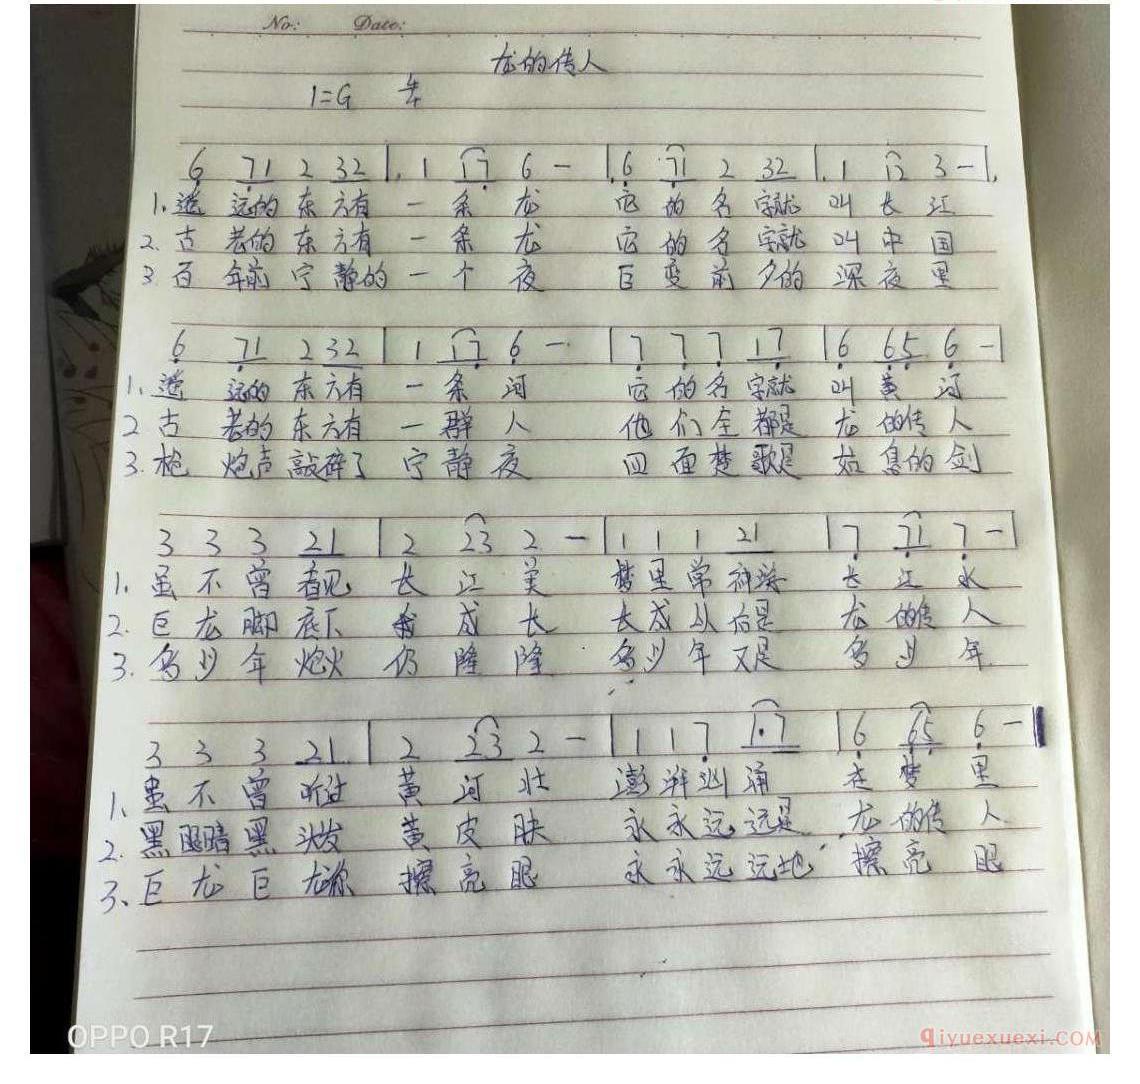 No: Date:
龙的传人
1=G 4/4
6 71 2 32 | 1 17 6 — | 6 71 2 32 | 1 12 3 — |
1. 遥 远的 东 方有 一 条 龙 它 的 名 字就 叫 长 江
2. 古 老的 东 方有 一 条 龙 它 的 名 字就 叫 中 国
3 百 年前 宁 静的 一 个 夜 巨 变 前 夕的 深 夜 里
6 71 2 32 | 1 17 6 — | 7 7 7 17 | 6 65 6 — |
1. 遥 远的 东 方有 一 条 河 它 的 名 字就 叫 黄 河
2 古 老的 东 方有 一 群 人 他 们 全 都是 龙 的传 人
3. 枪 炮声 敲碎了 宁 静 夜 四 面 楚 歌是 姑 息的 剑
3 3 3 21 | 2 23 2 — | 1 1 1 21 | 7 71 7 — |
1. 虽 不 曾 看见 长 江 美 梦 里 常 神游 长 江 水
2. 巨 龙 脚 底下 我 成 长 长 成 以 后是 龙 的传 人
3. 多 少 年 炮火 仍 隆 隆 多 少 年 又是 多 少 年
3 3 3 21 | 2 23 2 — | 1 1 7 1·7 | 6 65 6 — |
1. 虽 不 曾 听过 黄 河 壮 澎 湃 汹 涌 在 梦 里
2. 黑 眼睛 黑 头发 黄 皮 肤 永 永 远 远是 龙 的传 人
3、巨 龙 巨 龙你 擦 亮 眼 永 永 远 远地 擦 亮 眼
OPPO R17
qiyuexuexi.COM